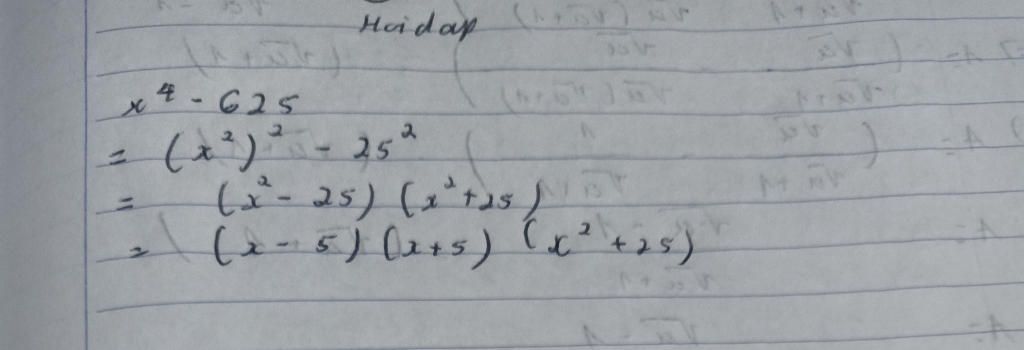 Hoidap
x⁴ - 625
= (x²)² - 25²
= (x² - 25) (x² + 25)
= (x - 5) (x + 5) (x² + 25)